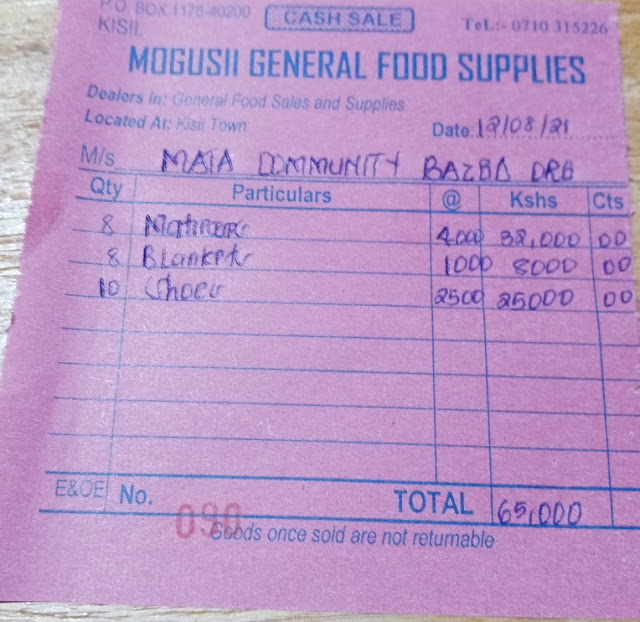 P.O. BOX 1178-40200
KISII.
CASH SALE
TeL:- 0710 315226
MOGUSII GENERAL FOOD SUPPLIES
Dealers In: General Food Sales and Supplies
Located At: Kisii Town
Date: 12/08/21
M/s MATA COMMUNITY BAZBA ORG
Qty Particulars @ Kshs Cts
8 4000 32,000 00
8 Blankets 1000 8000 00
10 Shoes 2500 25000 00
E&OE No. 090 TOTAL 65,000
Goods once sold are not returnable